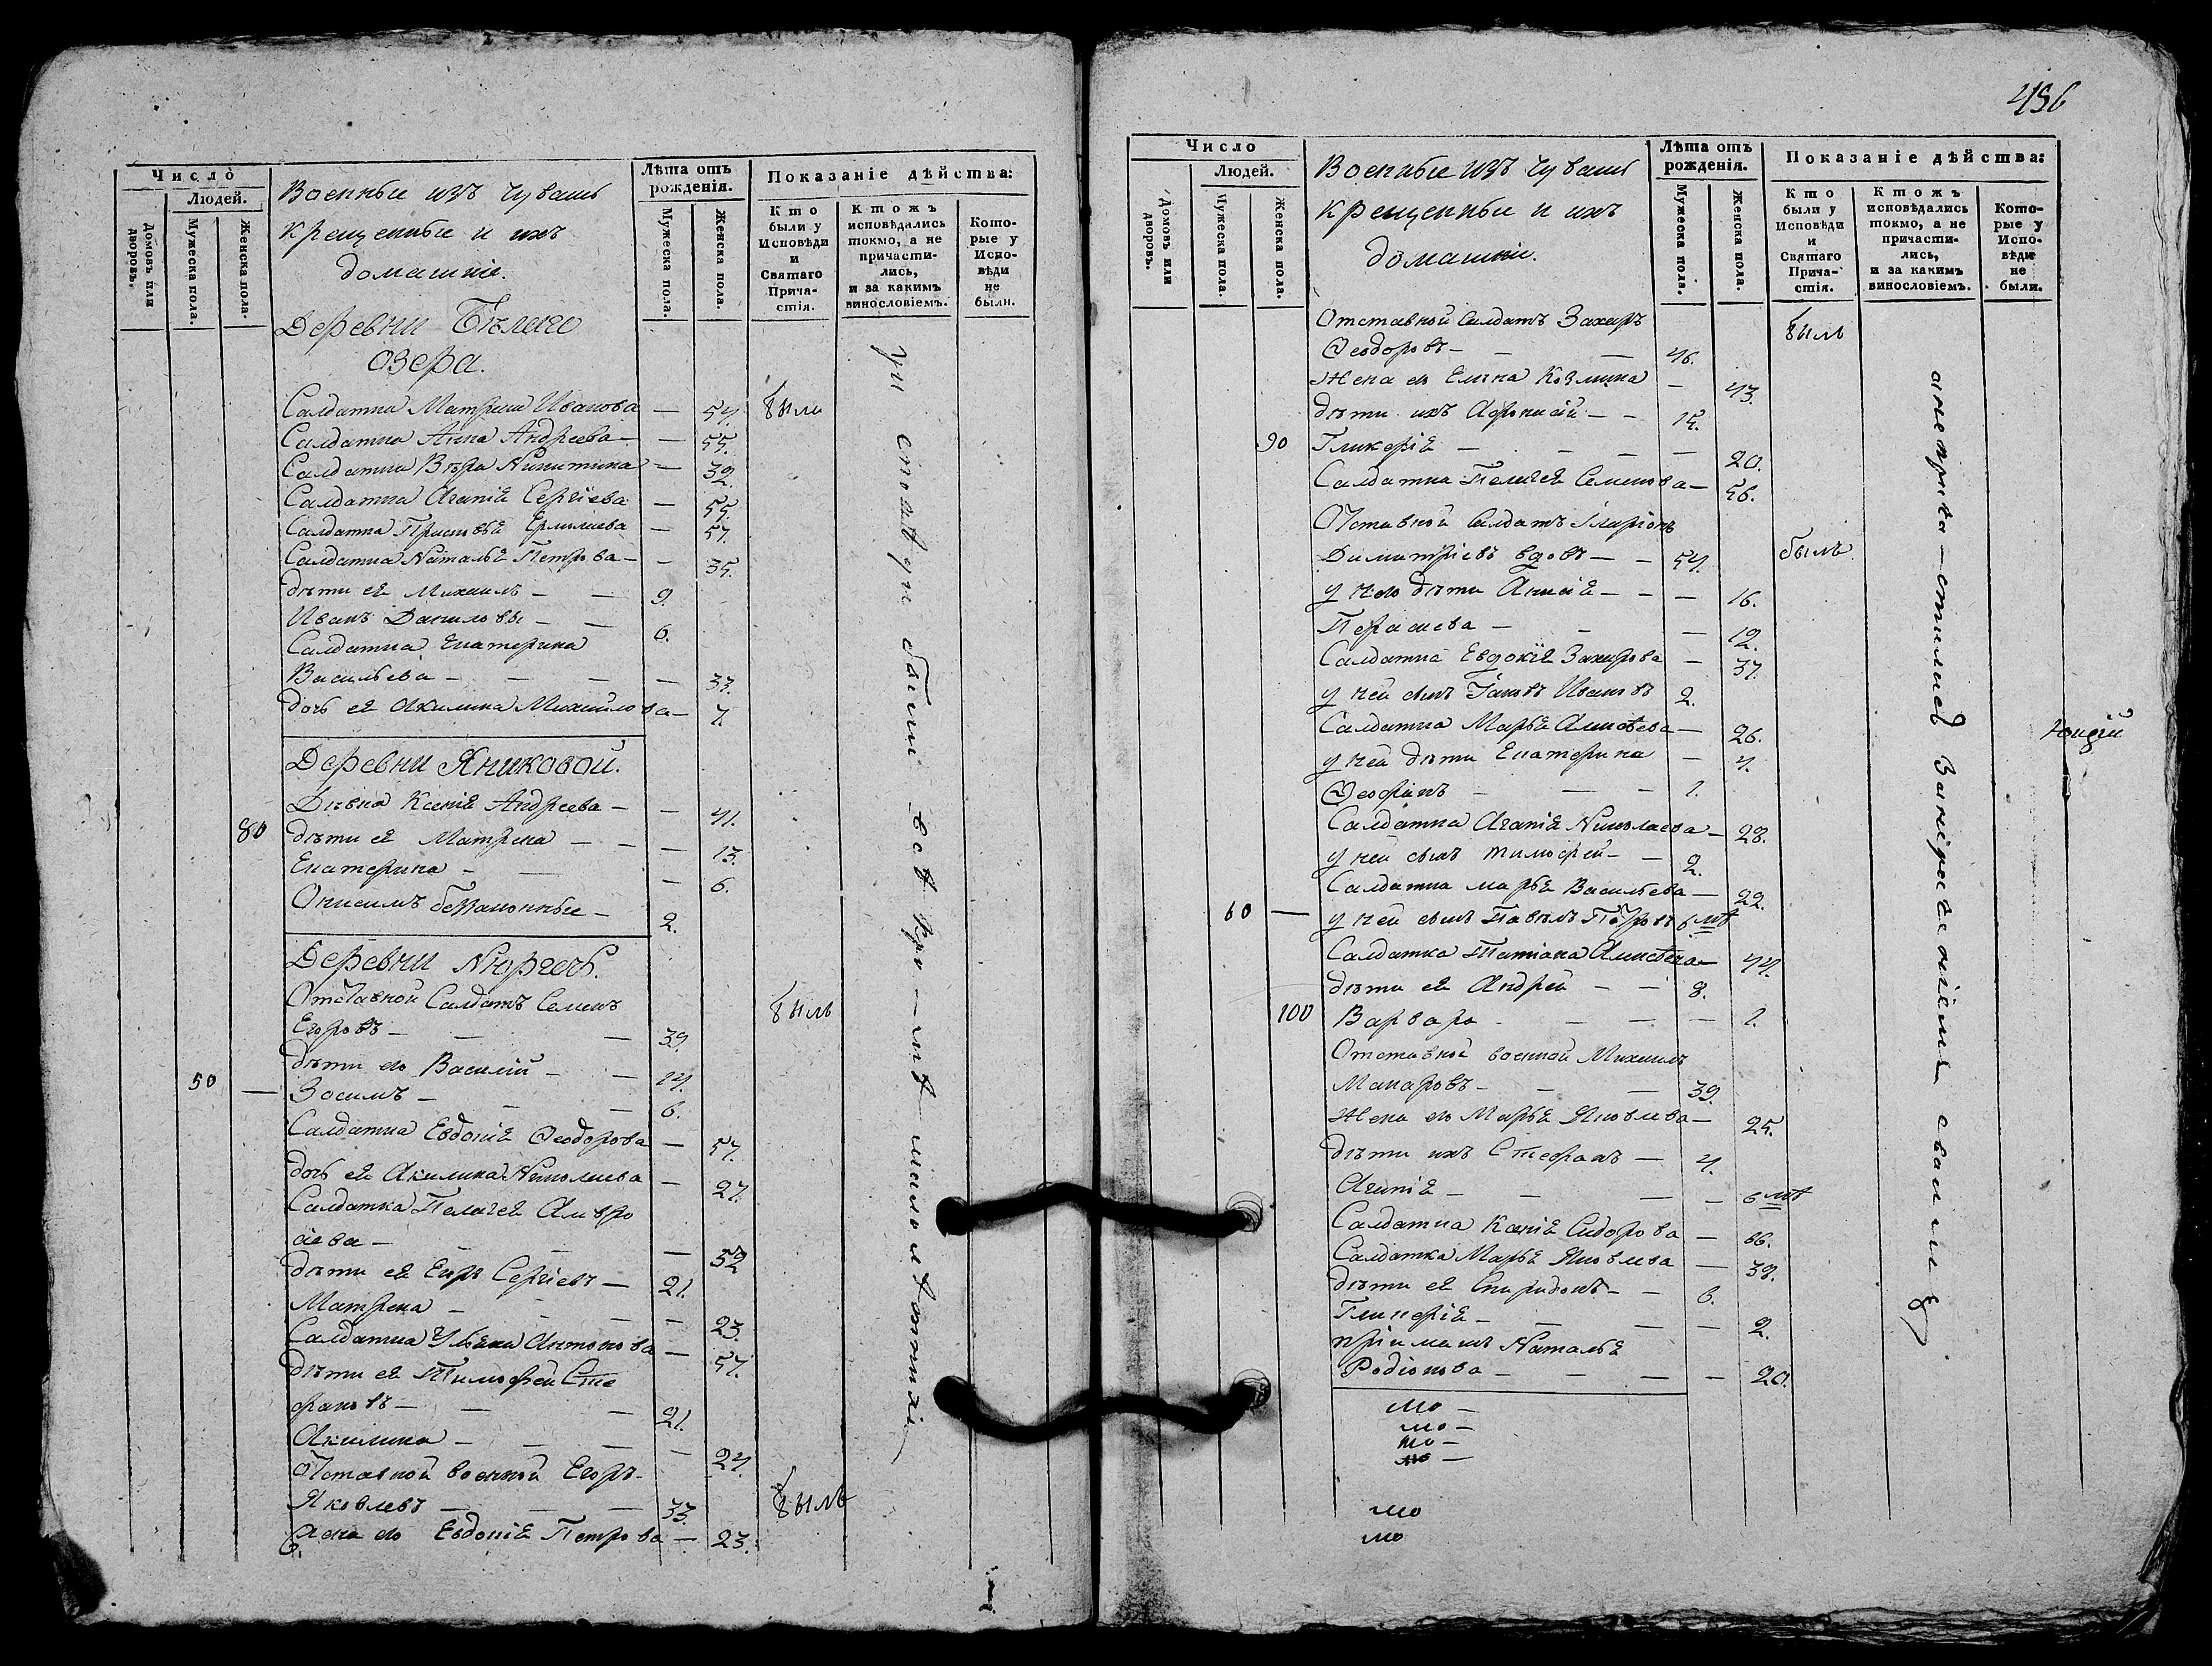 Число
Людей.
Домовъ или дворовъ.
Мужеска пола.
Женска пола.
Военныи изъ чувашъ
крещенныи и ихъ
домашніи.
Лѣта отъ рожденія.
Мужеска пола.
Женска пола.
Показаніе дѣйства:
Кто были у Исповѣди и Святаго Причастія.
Ктожъ исповѣдались токмо, а не причастились, и за какимъ винословіемъ.
Которые у Исповѣди не были.
Деревни Бѣлаго
озера.
Салдатка Матрена Иванова — 54. были
Салдатка Анна Андреева — — 55.
Салдатка Вѣра Никитина — 32.
Салдатка Агапія Сергіева — 55.
Салдатка Прасковья Ермолаева — 57.
Салдатка Наталья Петрова — — 35.
дѣти ея Михаилъ — — 9.
Иванъ Даниловы — — 6.
Салдатка Екатерина
Васильева — — — — 33.
дочь ея Акилина Михайлова — 7.
Деревни Яниковой.
Дѣвка Ксенія Андреева — — 41.
80 дѣти ея Матрена — — — 13.
Екатерина — — — 6.
Онисимъ беззаконныи — 2.
Деревни Нюргечь.
Отставной Салдатъ Семенъ был
Егоровъ — — — 39.
дѣти его Василій — — 14.
50 — Зосимъ — — — 6.
Салдатка Евдокія Ѳеодорова — 57.
дочь ея Акилина Николаева — 27.
Салдатка Пелагея Амвро
сіева — — — 52
дѣти ея Егоръ Сергіевъ — 21.
Матрена — — — — 23.
Салдатка Ульяна Антонова — 57.
дѣти ея Тимофей Сте
фановъ — — — 21.
Акилина — — — — 24.
Отставной военной Егоръ
Яковлевъ — — — 33. былъ
Жена его Евдокія Петрова — 23.
у исповѣди были всѣ кромѣ малолѣтнихъ
456
Число
Людей.
Домовъ или дворовъ.
Мужеска пола.
Женска пола.
Военные изъ чувашъ
крещенныи и ихъ
домашніи.
Лѣта отъ рожденія.
Мужеска пола.
Женска пола.
Показаніе дѣйства:
Кто были у Исповѣди и Святаго Причастія.
Ктожъ исповѣдались токмо, а не причастились, и за какимъ винословіемъ.
Которые у Исповѣди не были.
Отставной Салдатъ Захаръ былъ
Ѳеодоровъ — — — 46.
Жена его Елена Козмина — 43.
дѣти ихъ Афонасій — — 15.
90 Гликерія — — — — 20.
Салдатка Пелагея Семенова — 56.
Отставной Салдатъ Иларіонъ
Димитріевъ вдовъ — — 54. былъ
у него дѣти Анисія — — — 16.
Параскева — — — 12.
Салдатка Евдокія Захарова — 37.
у ней сынъ Іаковъ Ивановъ 2.
Салдатка Марья Алексѣева — 26.
у ней дѣти Екатерина — 4.
Ѳеофанъ — — — 1.
Салдатка Агапія Николаева — 28.
у ней сынъ Тимофей — — 2.
Салдатка Марья Васильева — 22.
60 — у ней сынъ Павелъ Петровъ 6 мѣ
Салдатка Татіана Алексѣева — 44.
дѣти ея Андрей — — 8.
100 Варвара — — — — 1.
Отставной военной Михаилъ
Макаровъ — — — 39.
Жена его Марья Яковлева — 25.
дѣти ихъ Стефанъ — 4.
Агапія — — — — 6 мѣ
Салдатка Ксенія Сидорова — 66.
Салдатка Марья Яковлева — 38.
дѣти ея Спиридонъ — — 6.
Гликерія — — — — 2.
пріемышъ Наталья
Родіонова — — — — 20.
мо —
мо —
мо —
мо —
мо
мо